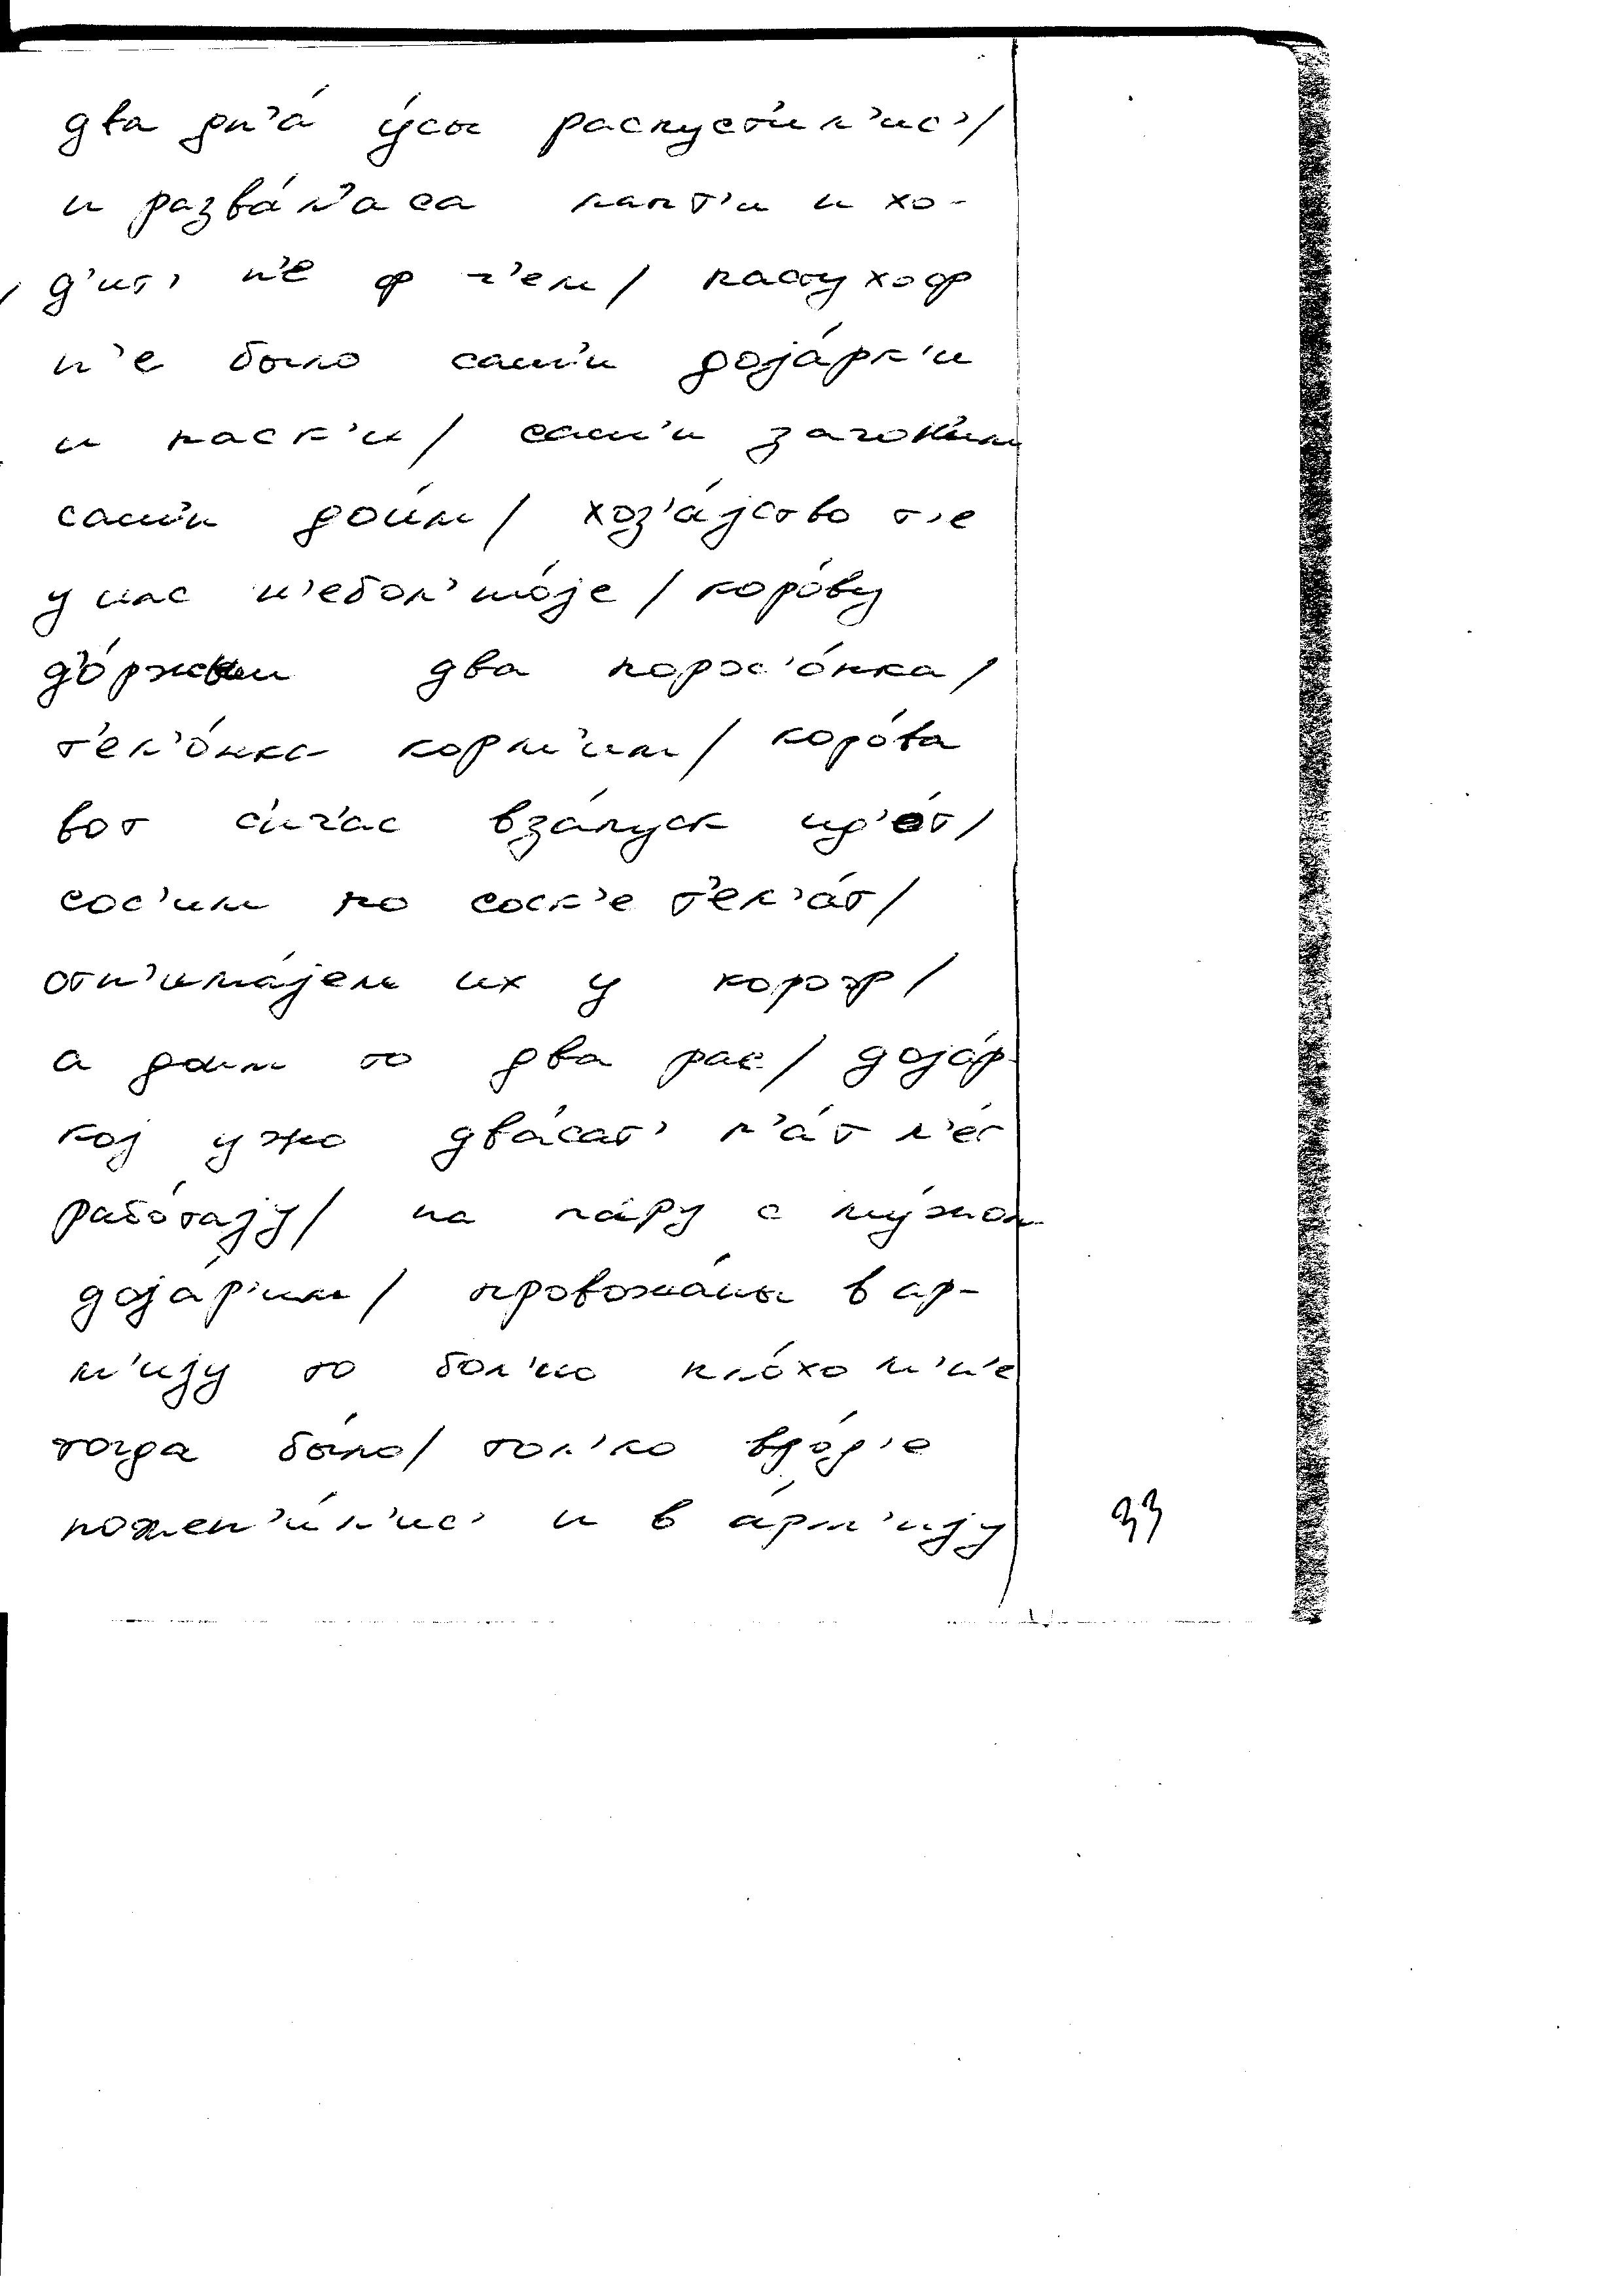 два дн'а́ у́сы распусти́л'ис'/
и разва́л'аса лапт'и и хо-
д'ит' н'е ф ч'ем/ пастухоф
н'е было сам'и доја́рк'и
и пасл'и/ сам'и загон'им
сам'и доим/ хоз'а́јство т'е
у нас н'ебол'шо́је/ коро́ву
д'о́ржым два порос'о́нка/
т'ел'о́нка корм'им/ коро́ва
вот с'ич'ас вза́пуск ид'о́т/
сос'им по соск'е т'ел'а́т/
отн'има́јем их у короф/
а доим то два рас/ доја́р-
кој ужо два́сат' п'а́т л'ет
рабо́тају/ на па́ру с му́жом
доја́р'им/ провожа́ны в ар-
м'ију то бол'но пло́хо м'н'е
тогда бы́ло/ тол'ко вро́д'е
пожен'и́л'ис' и в а́рм'ију
33